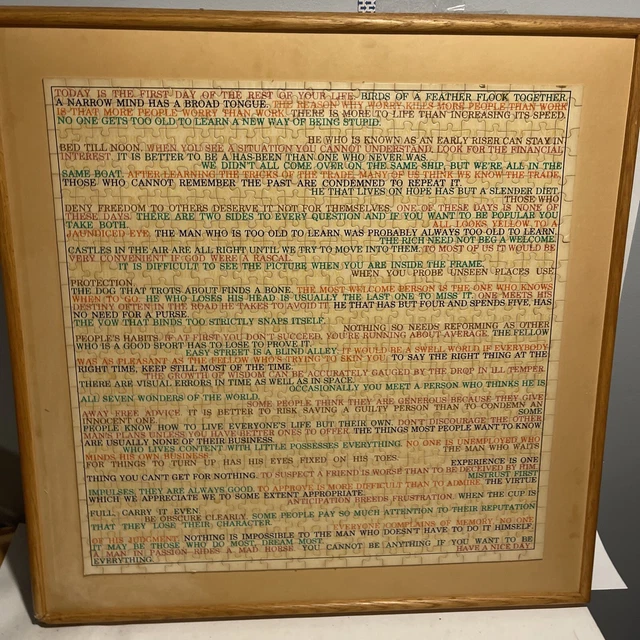 TODAY IS THE FIRST DAY OF THE REST OF YOUR LIFE. BIRDS OF A FEATHER FLOCK TOGETHER.
A NARROW MIND HAS A BROAD TONGUE. THE REASON WHY WORRY KILLS MORE PEOPLE THAN WORK
IS THAT MORE PEOPLE WORRY THAN WORK. THERE IS MORE TO LIFE THAN INCREASING ITS SPEED.
NO ONE GETS TOO OLD TO LEARN A NEW WAY OF BEING STUPID.
HE WHO IS KNOWN AS AN EARLY RISER CAN STAY IN
BED TILL NOON. WHEN YOU SEE A SITUATION YOU CANNOT UNDERSTAND, LOOK FOR THE FINANCIAL
INTEREST. IT IS BETTER TO BE A HAS-BEEN THAN ONE WHO NEVER WAS.
WE DIDN'T ALL COME OVER ON THE SAME SHIP, BUT WE'RE ALL IN THE
SAME BOAT. AFTER LEARNING THE TRICKS OF THE TRADE, MANY OF US THINK WE KNOW THE TRADE.
THOSE WHO CANNOT REMEMBER THE PAST ARE CONDEMNED TO REPEAT IT.
HE THAT LIVES ON HOPE HAS BUT A SLENDER DIET.
THOSE WHO
DENY FREEDOM TO OTHERS DESERVE IT NOT FOR THEMSELVES. ONE OF THESE DAYS IS NONE OF
THESE DAYS. THERE ARE TWO SIDES TO EVERY QUESTION AND IF YOU WANT TO BE POPULAR YOU
TAKE BOTH. ALL LOOKS YELLOW TO A
JAUNDICED EYE. THE MAN WHO IS TOO OLD TO LEARN WAS PROBABLY ALWAYS TOO OLD TO LEARN.
THE RICH NEED NOT BEG A WELCOME.
CASTLES IN THE AIR ARE ALL RIGHT UNTIL WE TRY TO MOVE INTO THEM. TO MOST OF US IT WOULD BE
VERY CONVENIENT IF GOD WERE A RASCAL.
IT IS DIFFICULT TO SEE THE PICTURE WHEN YOU ARE INSIDE THE FRAME.
WHEN YOU PROBE UNSEEN PLACES USE
PROTECTION.
THE DOG THAT TROTS ABOUT FINDS A BONE. THE MOST WELCOME PERSON IS THE ONE WHO KNOWS
WHEN TO GO. HE WHO LOSES HIS HEAD IS USUALLY THE LAST ONE TO MISS IT. ONE MEETS HIS
DESTINY OFTEN IN THE ROAD HE TAKES TO AVOID IT. HE THAT HAS BUT FOUR AND SPENDS FIVE, HAS
NO NEED FOR A PURSE.
THE VOW THAT BINDS TOO STRICTLY SNAPS ITSELF.
NOTHING SO NEEDS REFORMING AS OTHER
PEOPLE'S HABITS. IF AT FIRST YOU DON'T SUCCEED, YOU'RE RUNNING ABOUT AVERAGE. THE FELLOW
WHO IS A GOOD SPORT HAS TO LOSE TO PROVE IT.
EASY STREET IS A BLIND ALLEY. IT WOULD BE A SWELL WORLD IF EVERYBODY
WAS AS PLEASANT AS THE FELLOW WHO'S TRYING TO SKIN YOU. TO SAY THE RIGHT THING AT THE
RIGHT TIME, KEEP STILL MOST OF THE TIME.
THE GROWTH OF WISDOM CAN BE ACCURATELY GAUGED BY THE DROP IN ILL TEMPER.
THERE ARE VISUAL ERRORS IN TIME AS WELL AS IN SPACE.
OCCASIONALLY YOU MEET A PERSON WHO THINKS HE IS
ALL SEVEN WONDERS OF THE WORLD.
SOME PEOPLE THINK THEY ARE GENEROUS BECAUSE THEY GIVE
AWAY FREE ADVICE. IT IS BETTER TO RISK SAVING A GUILTY PERSON THAN TO CONDEMN AN
INNOCENT ONE. SOME
PEOPLE KNOW HOW TO LIVE EVERYONE'S LIFE BUT THEIR OWN. DON'T DISCOURAGE THE OTHER
MAN'S PLANS UNLESS YOU HAVE BETTER ONES TO OFFER. THE THINGS MOST PEOPLE WANT TO KNOW
ARE USUALLY NONE OF THEIR BUSINESS.
WHO LIVES CONTENT WITH LITTLE POSSESSES EVERYTHING. NO ONE IS UNEMPLOYED WHO
MINDS HIS OWN BUSINESS. THE MAN WHO WAITS
FOR THINGS TO TURN UP HAS HIS EYES FIXED ON HIS TOES.
EXPERIENCE IS ONE
THING YOU CAN'T GET FOR NOTHING. TO SUSPECT A FRIEND IS WORSE THAN TO BE DECEIVED BY HIM.
MISTRUST FIRST
IMPULSES, THEY ARE ALWAYS GOOD. TO APPROVE IS MORE DIFFICULT THAN TO ADMIRE. THE VIRTUE
WHICH WE APPRECIATE WE TO SOME EXTENT APPROPRIATE.
ANTICIPATION BREEDS FRUSTRATION. WHEN THE CUP IS
FULL, CARRY IT EVEN.
BE OBSCURE CLEARLY. SOME PEOPLE PAY SO MUCH ATTENTION TO THEIR REPUTATION
THAT THEY LOSE THEIR CHARACTER.
EVERYONE COMPLAINS OF MEMORY, NO ONE
OF HIS JUDGMENT. NOTHING IS IMPOSSIBLE TO THE MAN WHO DOESN'T HAVE TO DO IT HIMSELF.
IT MAY BE THOSE WHO DO MOST, DREAM MOST.
A MAN IN PASSION RIDES A MAD HORSE. YOU CANNOT BE ANYTHING IF YOU WANT TO BE
EVERYTHING. HAVE A NICE DAY.